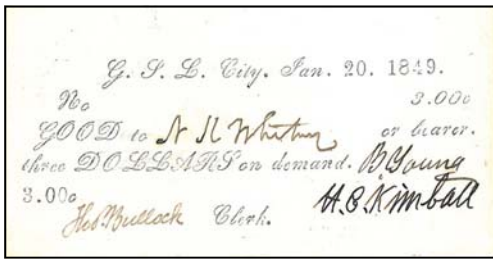 G. S. L. City. Jan. 20. 1849.
No 3.00c
GOOD to N K Whitney or bearer.
three DOLLARS on demand. B Young
3.00c H. C. Kimball
Tho.s Bullock Clerk.